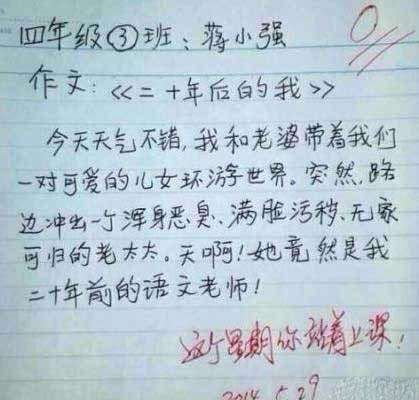 四年级③班：蒋小强
0
作文：《二十年后的我》
今天天气不错，我和老婆带着我们
一对可爱的儿女环游世界。突然，路
边冲出一个浑身恶臭、满脸污秽、无家
可归的老太太。天啊！她竟然是我
二十年前的语文老师！
这个星期你站着上课！
2014.5.29